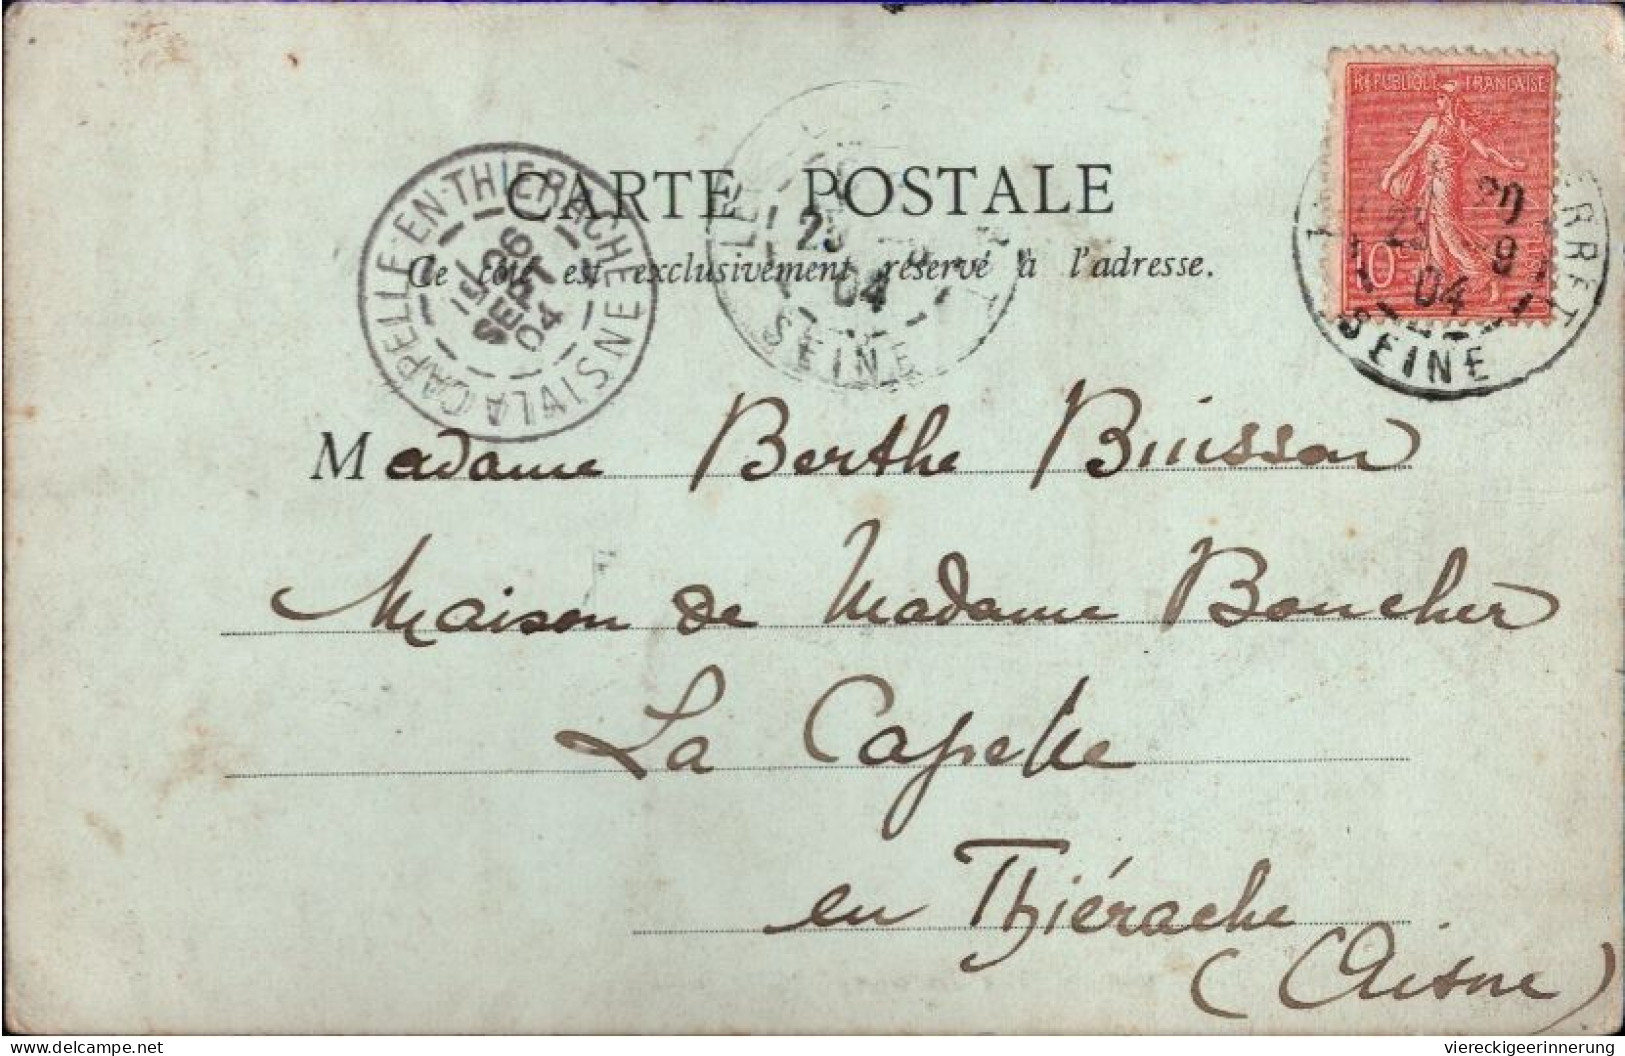 RÉPUBLIQUE FRANÇAISE
10c
LA CAPELLE-EN-THIERACHE
15 26
SEPT
04
AISNE
LE
25
04
SEINE
20
25 9
04
RRET
SEINE
CARTE POSTALE
Ce côté est exclusivement réservé à l'adresse.
Madame Berthe Buisson
Maison de Madame Boucher
La Capelle
en Thiérache
(Aisne)
delcampe.net
viereckigeerinnerung